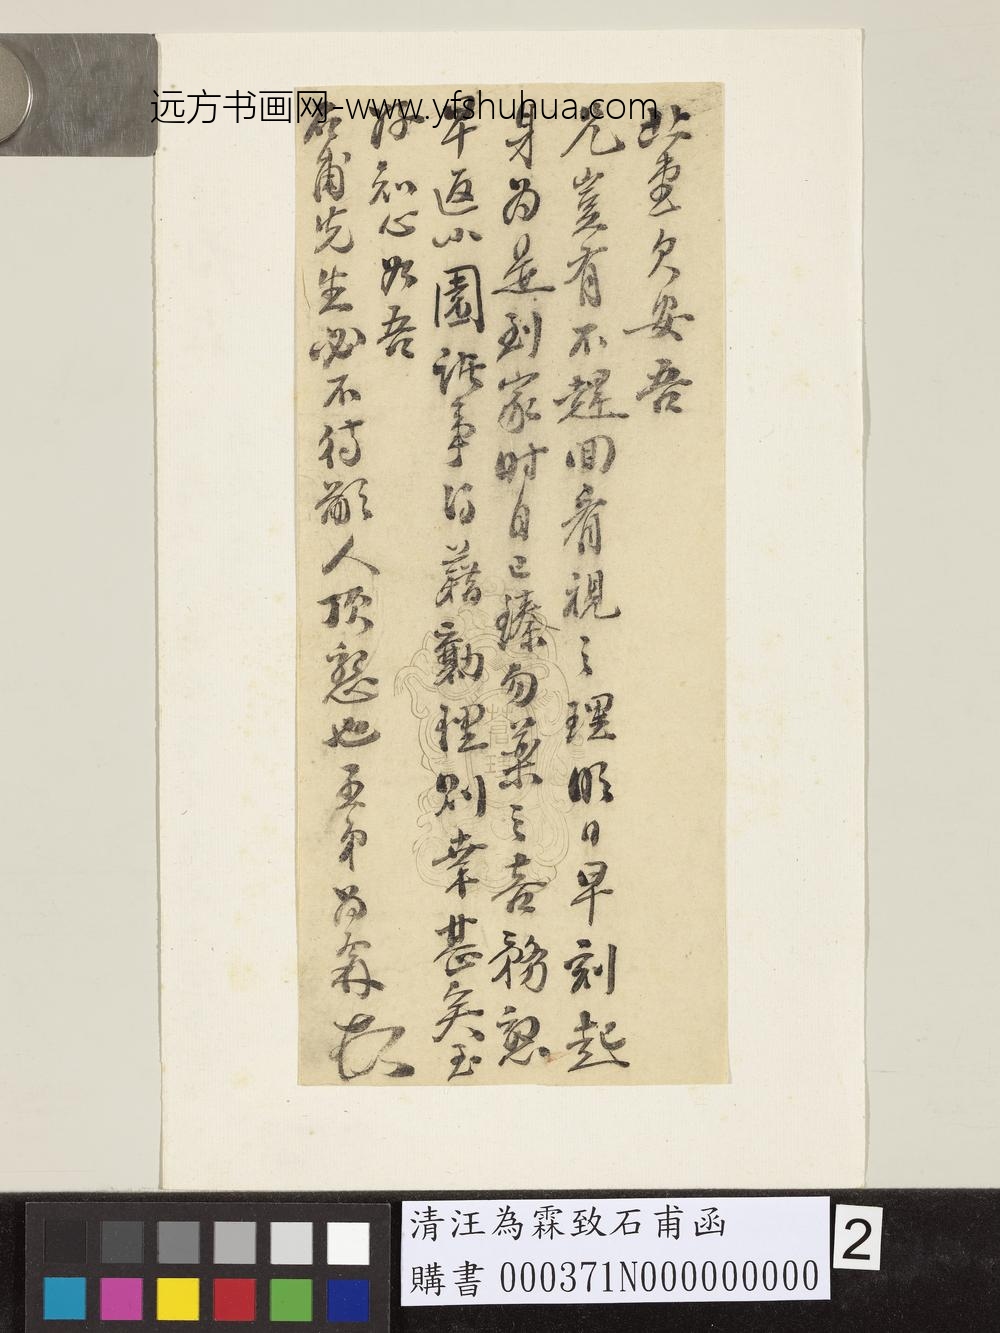 远方书画网-www.yfshuhua.com
北堂欠安吾
兄豈有不趕回看視之理明日早刻起
身為是到家時自已臻勿藥之喜務懇
早返小園諸事得藉勷理則幸甚矣至
好知心如吾
石甫先生必不待鄙人頂懇也至弟為霖頓
清汪為霖致石甫函
購書 000371N000000000
2